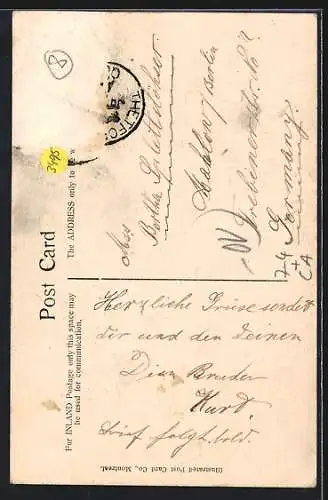 Post Card
For INLAND Postage only this space may
be used for communication.
The ADDRESS only to be w
THETFO
8
3495
Miss
Bertha
Mahlow / Berlin
Trebinerstr. No 2
Germany.
Herzliche Grüse sendet
dir und den Deinen
Dein Bruder
Kurt.
Brief folgt bald.
Illustrated Post Card Co., Montreal.